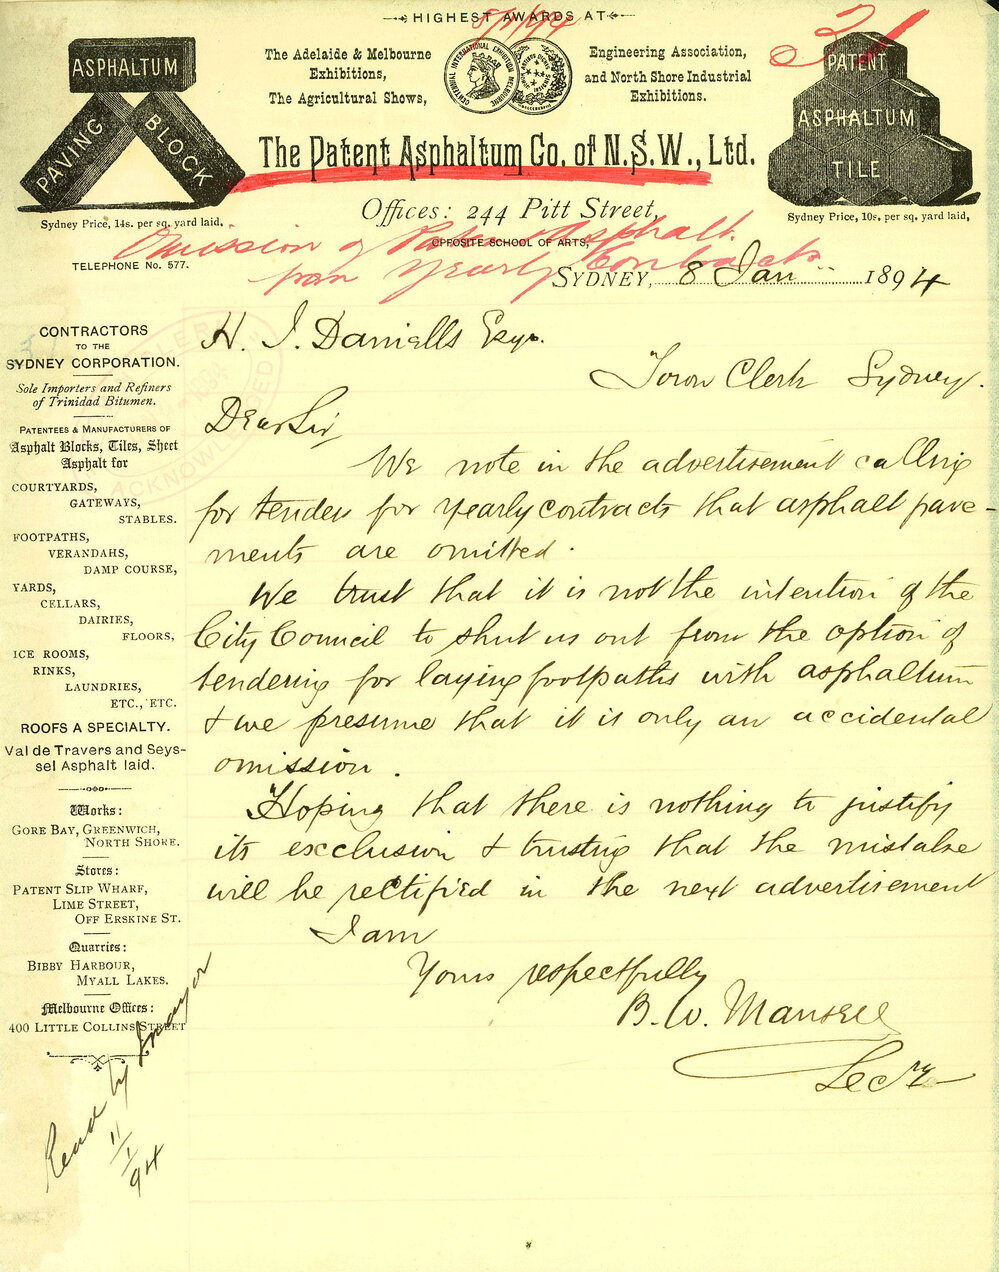 HIGHEST AWARDS AT
The Adelaide & Melbourne
Exhibitions,
The Agricultural Shows,
CENTENNIAL INTERNATIONAL EXHIBITION MELBOURNE
Engineering Association,
and North Shore Industrial
Exhibitions.
ASPHALTUM
PAVING
BLOCK
PATENT
ASPHALTUM
TILE
The Patent Asphaltum Co. of N.S.W., Ltd.
Sydney Price, 14s. per sq. yard laid,
Sydney Price, 10s. per sq. yard laid,
Offices: 244 Pitt Street,
OPPOSITE SCHOOL OF ARTS,
Omission of Patent Asphalt
from Yearly Contracts
TELEPHONE No. 577.
SYDNEY, 8 Jan 1894
H. J. Daniells Esqr.
Town Clerk Sydney.
Dear Sir,
We note in the advertisement calling
for tenders for yearly contracts that asphalt pave-
ments are omitted.
We trust that it is not the intention of the
City Council to shut us out from the option of
tendering for laying footpaths with asphaltum
& we presume that it is only an accidental
omission.
Hoping that there is nothing to justify
its exclusion & trusting that the mistake
will be rectified in the next advertisement
I am
Yours respectfully
B. W. Mansell
Secry
CONTRACTORS
TO THE
SYDNEY CORPORATION.
Sole Importers and Refiners
of Trinidad Bitumen.
PATENTEES & MANUFACTURERS OF
Asphalt Blocks, Tiles, Sheet
Asphalt for
COURTYARDS,
GATEWAYS,
STABLES.
FOOTPATHS,
VERANDAHS,
DAMP COURSE,
YARDS,
CELLARS,
DAIRIES,
FLOORS,
ICE ROOMS,
RINKS,
LAUNDRIES,
ETC., ETC.
ROOFS A SPECIALTY.
Val de Travers and Seys-
sel Asphalt laid.
Works:
GORE BAY, GREENWICH,
NORTH SHORE.
Stores:
PATENT SLIP WHARF,
LIME STREET,
OFF ERSKINE ST.
Quarries:
BIBBY HARBOUR,
MYALL LAKES.
Melbourne Offices:
400 LITTLE COLLINS STREET
Read by Mayor
11/1/94
ACKNOWLEDGED